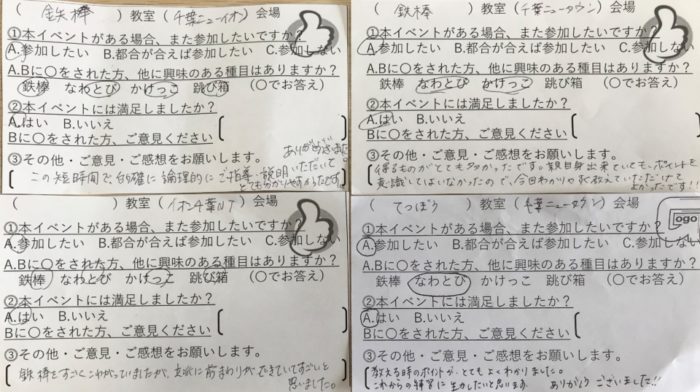 ( 鉄棒 ) 教室 ( 千葉ニューイオン ) 会場
①本イベントがある場合、また参加したいですか?
A.参加したい B.都合が合えば参加したい C.参加しない
A.Bに〇をされた方、他に興味のある種目はありますか?
鉄棒 なわとび かけっこ 跳び箱 (〇でお答え)
②本イベントには満足しましたか?
A.はい B.いいえ
Bに〇された方、ご意見ください
③その他・ご意見・ご感想をお願いします。
この短時間で、的確に論理的にご指導、説明いただいて
とても分かりやすかったです。
ありがとうございました。
( 鉄棒 ) 教室 ( 千葉ニュータウン ) 会場
①本イベントがある場合、また参加したいですか?
A.参加したい B.都合が合えば参加したい C.参加しない
A.Bに〇をされた方、他に興味のある種目はありますか?
鉄棒 なわとび かけっこ 跳び箱 (〇でお答え)
②本イベントには満足しましたか?
A.はい B.いいえ
Bに〇された方、ご意見ください
③その他・ご意見・ご感想をお願いします。
得るものがとても多かったです。親自身出来ていても、ポイントを
意識してはいなかったので、今回わかりやすく教えていただけて
よかったです!!
( ) 教室 ( イオン千葉NT ) 会場
①本イベントがある場合、また参加したいですか?
A.参加したい B.都合が合えば参加したい C.参加しない
A.Bに〇をされた方、他に興味のある種目はありますか?
鉄棒 なわとび かけっこ 跳び箱 (〇でお答え)
②本イベントには満足しましたか?
A.はい B.いいえ
Bに〇された方、ご意見ください
③その他・ご意見・ご感想をお願いします。
鉄棒をすごくこわがっていましたが、最後に前まわりができていてすごいと
思いました。
( てつぼう ) 教室 ( 千葉ニュータウン ) 会場
①本イベントがある場合、また参加したいですか?
A.参加したい B.都合が合えば参加したい C.参加しない
A.Bに〇をされた方、他に興味のある種目はありますか?
鉄棒 なわとび かけっこ 跳び箱 (〇でお答え)
②本イベントには満足しましたか?
A.はい B.いいえ
Bに〇された方、ご意見ください
③その他・ご意見・ご感想をお願いします。
教える時のポイントが、とてもよくわかりました。
これからの練習に生かしたいと思います. ありがとうございました!!